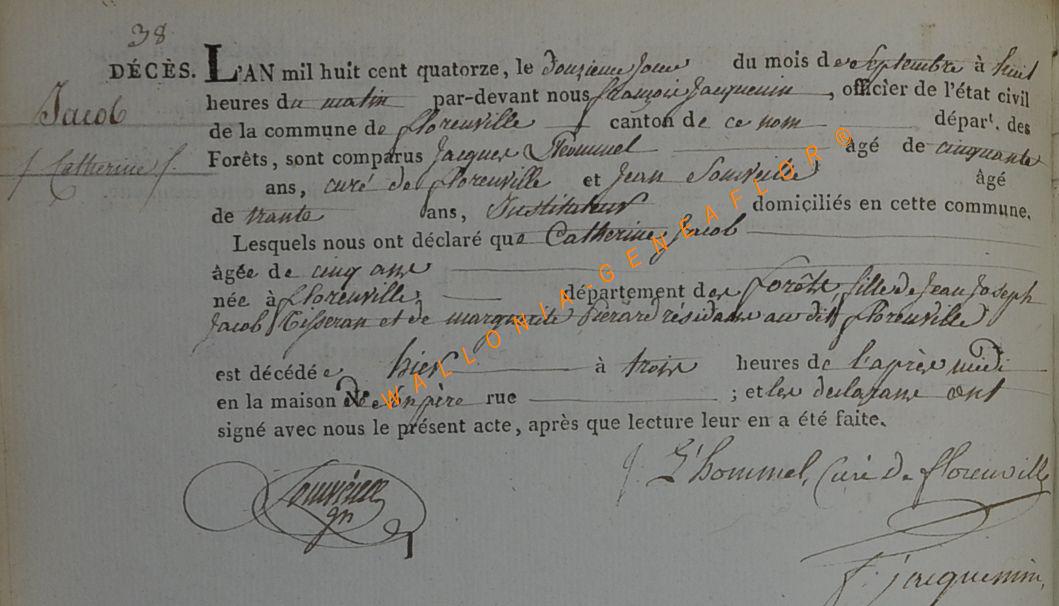 38
DÉCÈS. L'AN mil huit cent quatorze, le douzieme jour du mois de Septembre à huit
Jacob
heures du matin par-devant nous françois Jacquemin, officier de l'état civil
de la commune de florenville canton de ce nom départ. des
f. Catherine f.
Forêts, sont comparus Jacques L'hommel âgé de cinquante
ans, curé de florenville et Jean Souveille âgé
de trante ans, Instituteur domiciliés en cette commune.
Lesquels nous ont déclaré que Catherine Jacob
âgée de cinq ans
née à florenville, département des forêts, fille de Jean Joseph
Jacob Tisseran et de marguerite Pierard résidans au dit florenville
est décédée hier à trois heures de l'après midi
en la maison No. de son père rue ; et les declarans ont
signé avec nous le présent acte, après que lecture leur en a été faite.
J. L'hommel, curé de florenville
f. jacquemin,
WALLONIA-GENEAFLOR ©